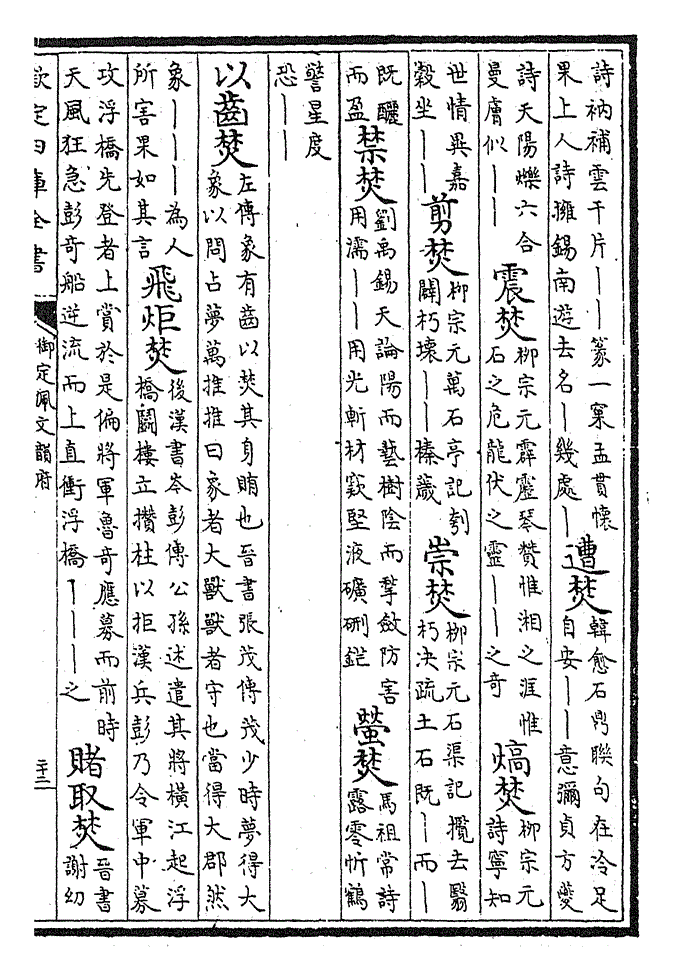 詩衲補雲千片丨丨篆一窠孟貫懷
果上人詩擁錫南遊去名丨幾處丨
遭焚
韓愈石鼎聯句在冷足
自安丨丨意彌貞方夔
詩天陽爍六合
曼膚似丨丨
震焚
柳宗元霹靂琴贊惟湘之涯惟
石之危龍伏之靈丨丨之奇
熇焚
柳宗元
詩寧知
世情異嘉
穀坐丨丨
剪焚
柳宗元萬石亭記刳
闢朽壤丨丨榛薉
崇焚
柳宗元石渠記攬去翳
朽決疏土石既丨而丨
既釃
而盈
禁焚
劉禹錫天論陽而藝樹陰而揫斂防害
用濡丨丨用光斬材窾堅液礦硎鋩
螢焚
馬祖常詩
露零忻鶴
警星度
恐丨丨
以齒焚
左傳象有齒以焚其身賄也晉書張茂傳茂少時夢得大
象以問占夢萬推推曰象者大獸獸者守也當得大郡然
象丨丨丨為人
所害果如其言
飛炬焚
後漢書岑彭傳公孫述遣其將橫江起浮
橋鬭樓立攢柱以拒漢兵彭乃令軍中募
攻浮橋先登者上賞於是偏將軍魯奇應募而前時
天風狂急彭奇船逆流而上直衝浮橋丨丨丨之
賭取焚
晉書
謝幼
欽定四庫全書
御定佩文韻府